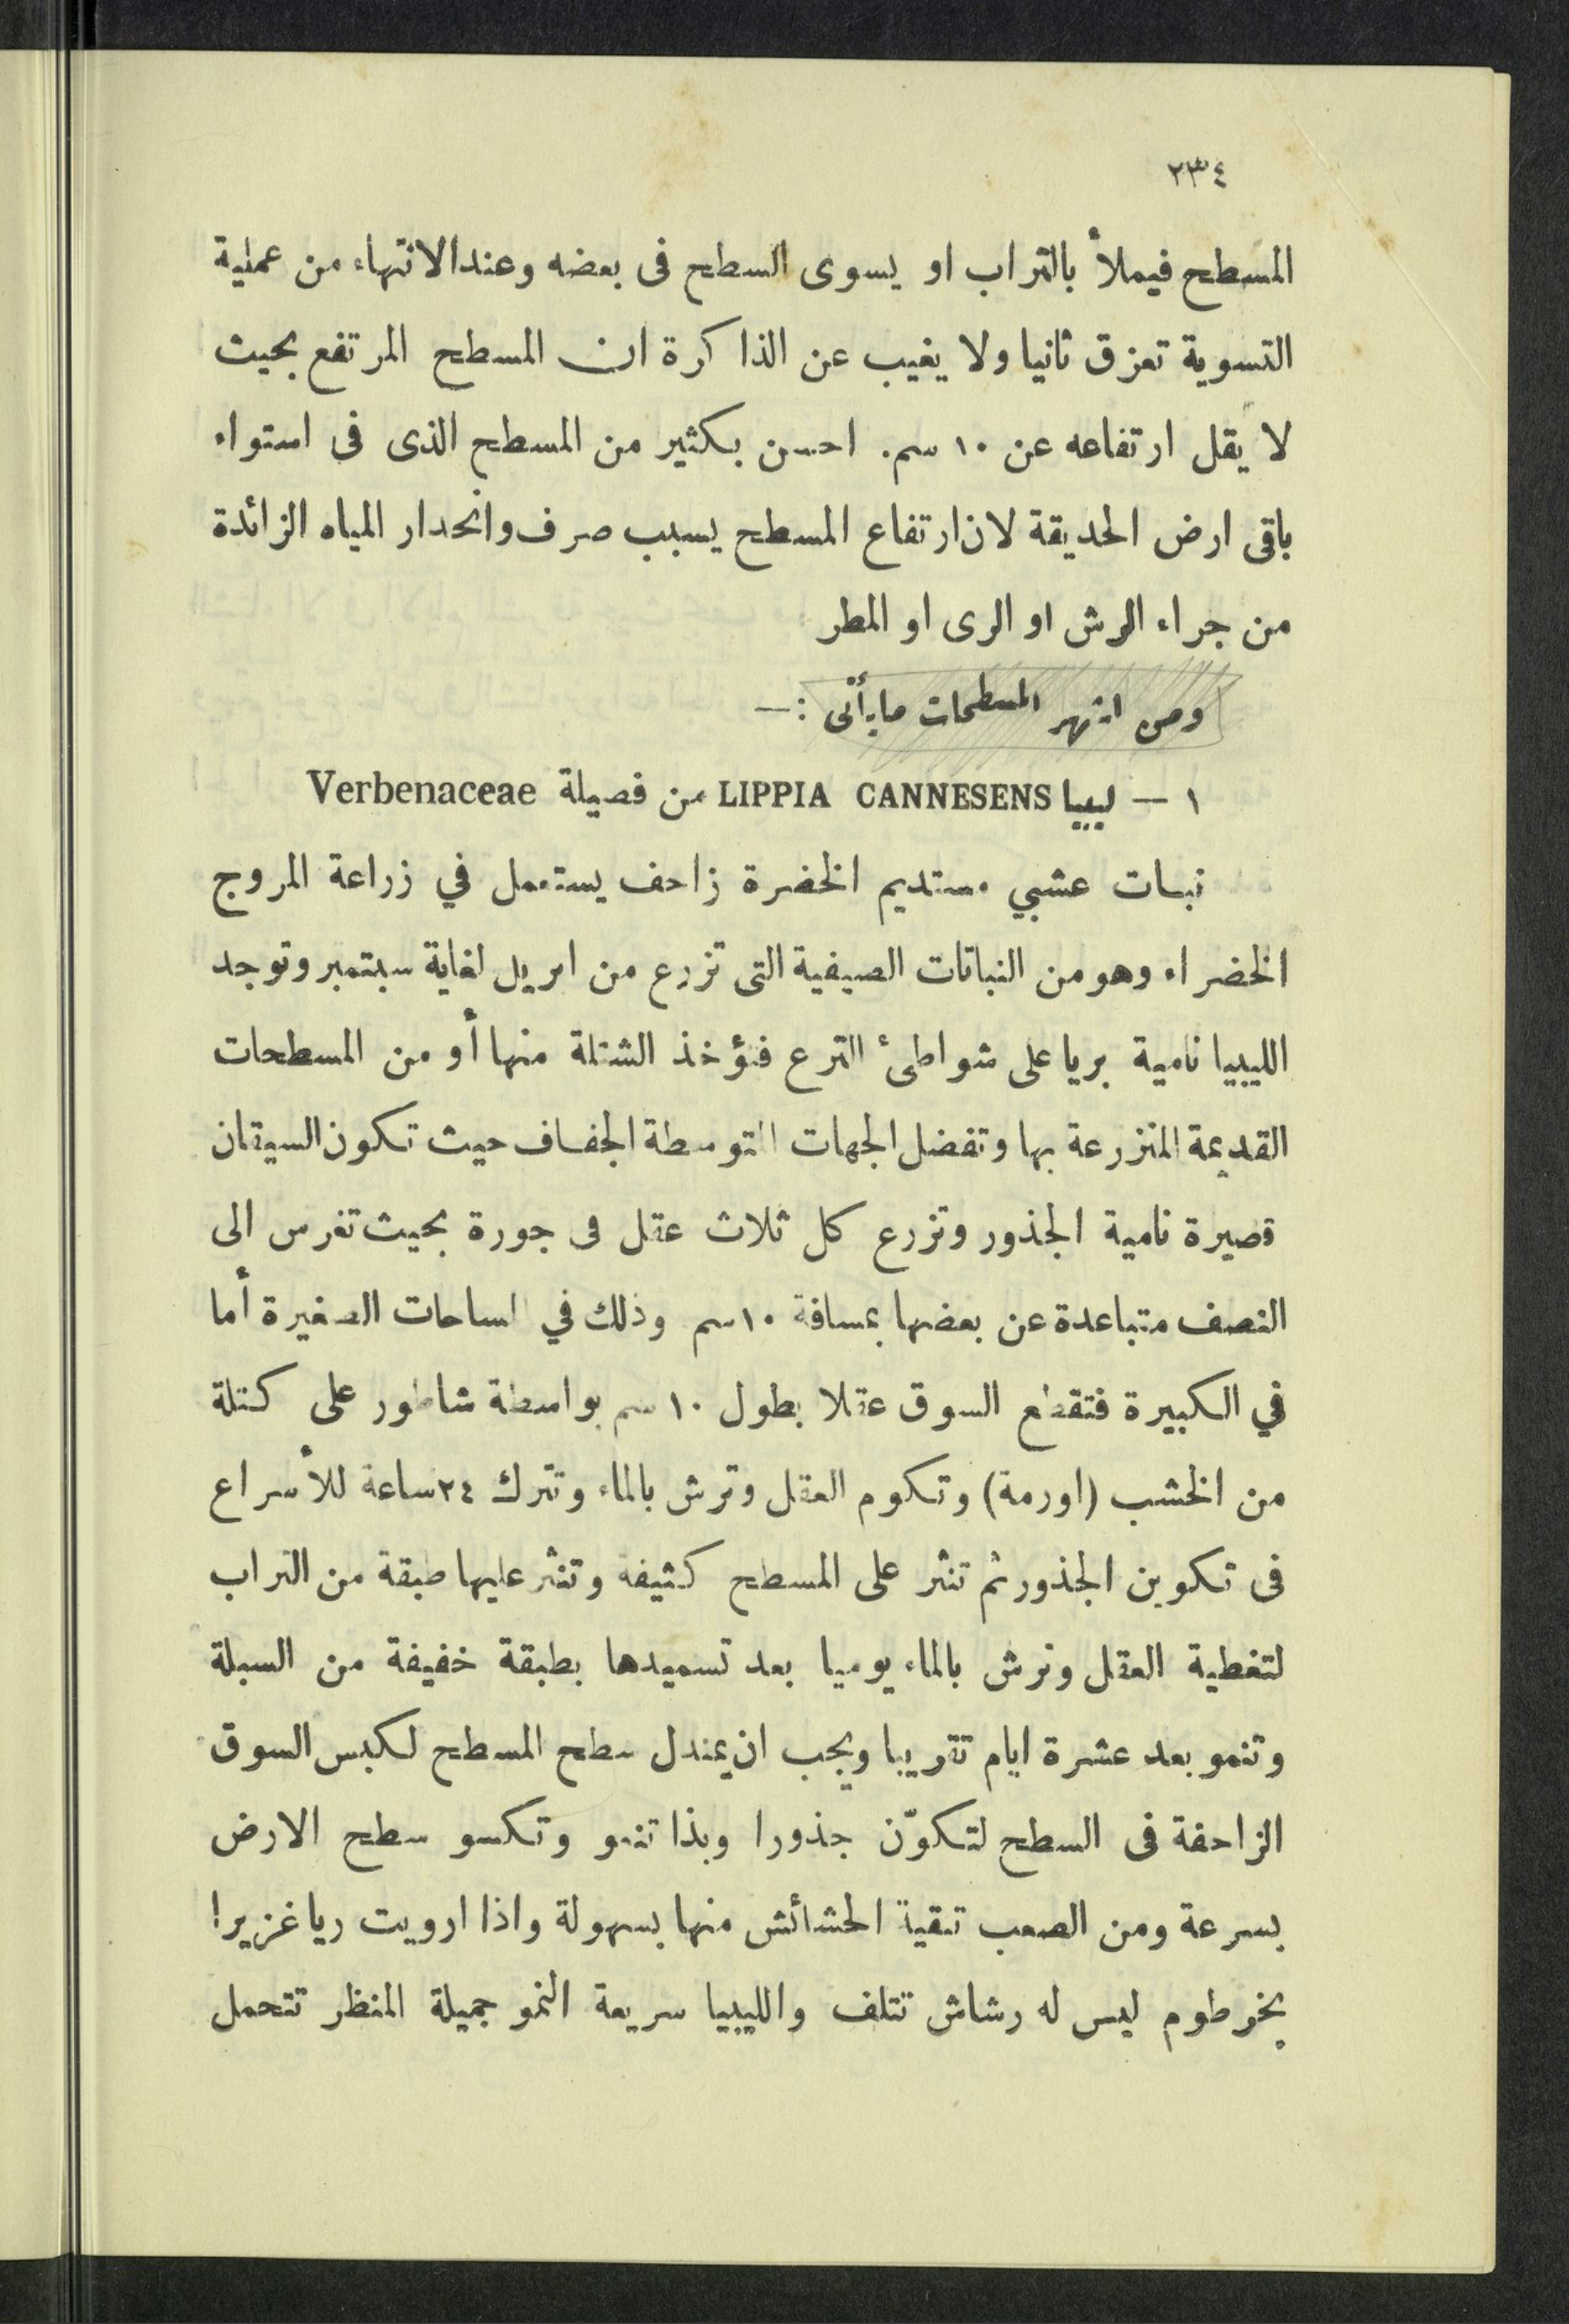 ٢٣٤
المسطح فيملأ بالتراب او يسوى السطح فى بعضه وعند الانتهاء من عملية
التسوية تعزق ثانيا ولا يغيب عن الذاكرة ان المسطح المرتفع بحيث
لا يقل ارتفاعه عن ١٠ سم. احسن بكثير من المسطح الذى فى استواء
باقى ارض الحديقة لان ارتفاع المسطح يسبب صرف وانحدار المياه الزائدة
من جراء الرش او الرى او المطر
ومن اشهر المسطحات ما يأتى :—
١ — ليبيا LIPPIA CANNESENS من فصيلة Verbenaceae
نبات عشبي مستديم الخضرة زاحف يستعمل في زراعة المروج
الخضراء وهو من النباتات الصيفية التى تزرع من ابريل لغاية سبتمبر وتوجد
الليبيا نامية بريا على شواطىء الترع فتؤخذ الشتلة منها أو من المسطحات
القديمة المنزرعة بها وتفضل الجهات المتوسطة الجفاف حيث تكون السيقان
قصيرة نامية الجذور وتزرع كل ثلاث عقل فى جورة بحيث تغرس الى
النصف متباعدة عن بعضها بمسافة ١٠سم وذلك في المساحات الصغيرة أما
في الكبيرة فتقطع السوق عقلا بطول ١٠ سم بواسطة شاطور على كتلة
من الخشب (اورمة) وتكوم العقل وترش بالماء وتترك ٢٤ساعة للأسراع
فى تكوين الجذور ثم تنثر على المسطح كثيفة وتنثر عليها طبقة من التراب
لتغطية العقل وترش بالماء يوميا بعد تسميدها بطبقة خفيفة من السبلة
وتنمو بعد عشرة ايام تقريبا ويجب ان يمندل سطح المسطح لكبس السوق
الزاحفة فى السطح لتكوّن جذورا وبذا تنمو وتكسو سطح الارض
بسرعة ومن الصعب تنقية الحشائش منها بسهولة واذا ارويت ريا غزيرا
بخرطوم ليس له رشاش تتلف والليبيا سريعة النمو جميلة المنظر تتحمل